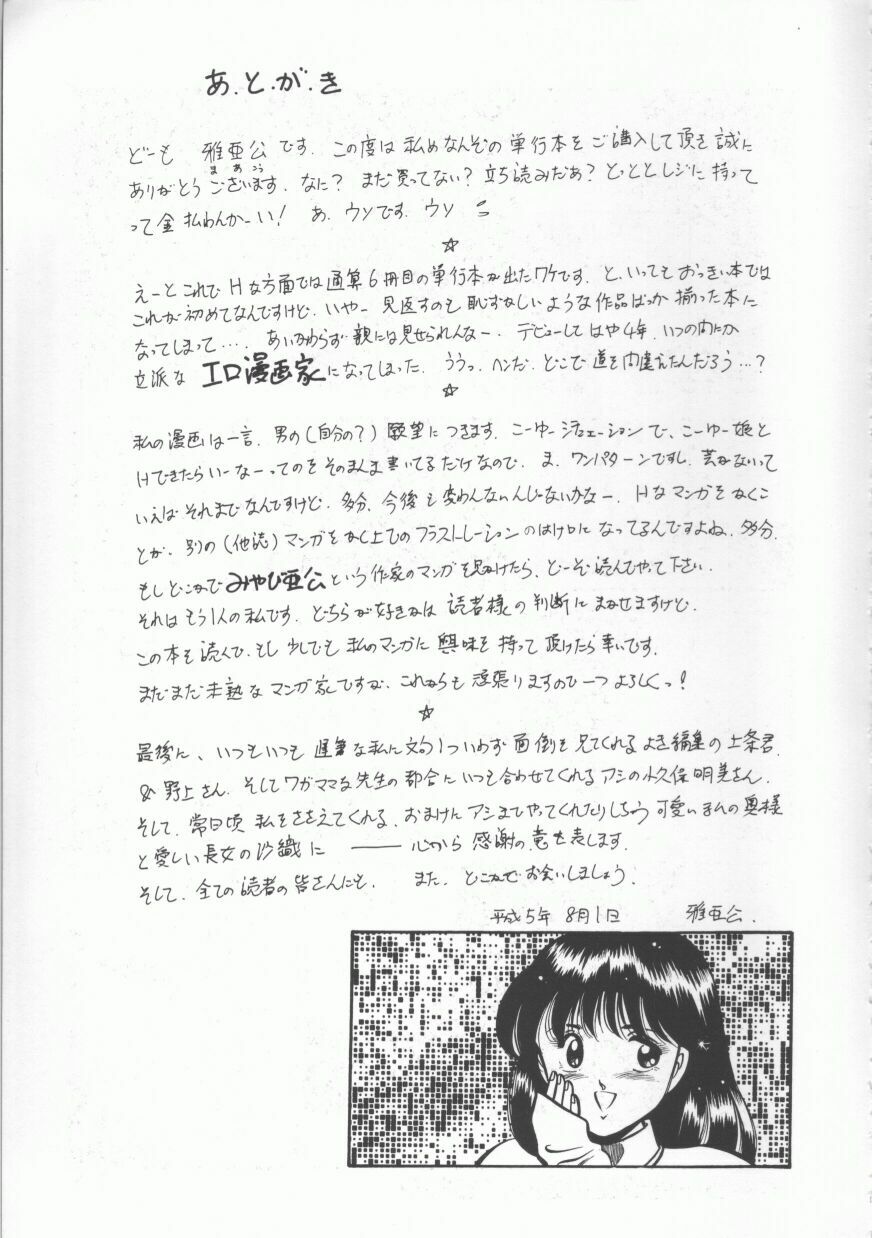 あ.と.が.き
どーも 雅亜公です. この度は私めなんぞの単行本をご購入して頂き誠に
まあこう
ありがとうございます. なに? まだ買ってない? 立ち読みだあ? とっととレジに持って
って金払わんかーい! あ. ウソです. ウソ
☆
えーとこれでHな方面では通算6冊目の単行本が出たワケです. と.いってもおっきい本では
これが初めてなんですけど. いやー 見返すのも恥ずかしいような作品ばっか揃った本に
なってしまって…. あいかわらず親には見せられんなー. デビューしてはや4年. いつの間にか
立派な エロ漫画家になってしまった. ううっ. ヘンだ. どこで道を間違えたんだろう…?
☆
私の漫画は一言. 男の(自分の?)願望につきます. こーゆーシチュエーションで、こーゆー娘と
Hできたらいーなーってのをそのまんま書いてるだけなので. ま. ワンパターンですし. 芸がないって
いえばそれまでなんですけど. 多分. 今後も変わんないんじゃないかなー. Hなマンガをかくこ
とが. 別の(他誌)マンガをかく上でのフラストレーションのはけ口になってるんですよね. 多分.
もしどこかでみやび亜公という作家のマンガを見かけたら、どーぞ読んでやって下さい.
それはもう1人の私です. どちらが好きかは 読者様の判断にまかせますけど.
この本を読んで. もし少しでも私のマンガに興味を持って頂けたら幸いです.
まだまだ未熟なマンガ家ですが、これからも頑張りますので一つよろしくっ!
☆
最後に、いつもいつも遅筆な私に文句1ついわず面倒を見てくれるよき編集の上条君.
& 野上さん. そしてワガママな先生の都合にいつも合わせてくれるアシの久保明美さん.
そして. 常日頃私をささえてくれる. おまけにアシまでやってくれたりしちゃう可愛いまんの奥様
と愛しい長女の沙織に ――― 心から感謝の意を表します.
そして. 全ての読者の皆さんにも. また. どこかでお会いしましょう.
平成5年 8月1日 雅亜公.